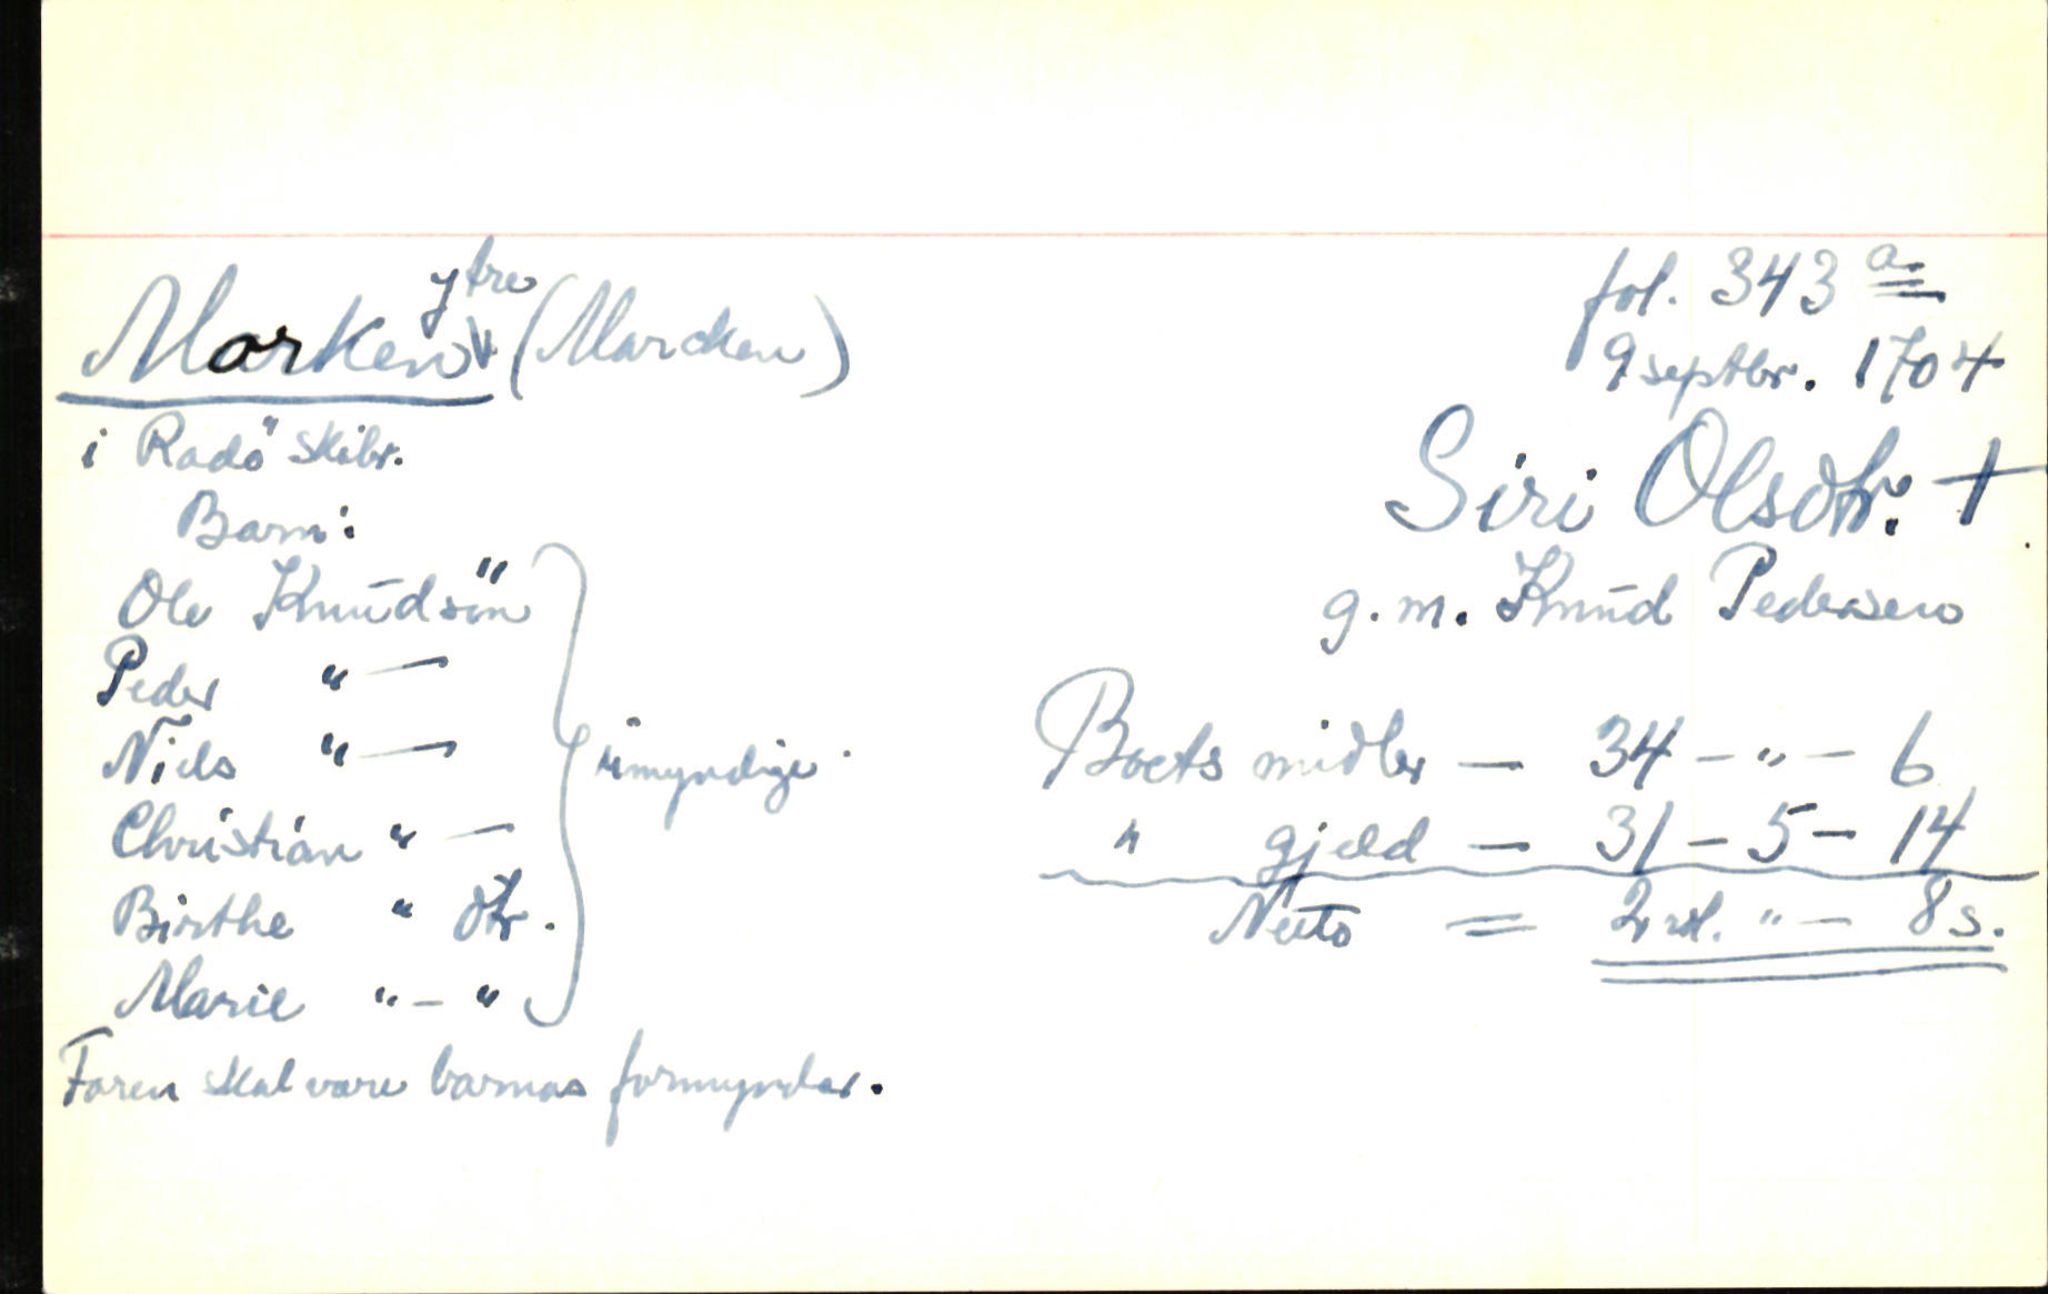 Marken ytre (Marcken)
i Radö skibr.
Barn:
Ole Knudsön
Peder " —
Niels " —
Christian " —
Birthe " dtr.
Marie " – "
umyndige.
Faren skal være barnas formynder.
fol. 343 a
9 septbr. 1704
Siri Olsdtr. +
g. m. Knud Pedersen
Boets midler — 34 – " – 6
" gjeld — 31 – 5 – 14
Netto = 2 rd. " – 8 s.